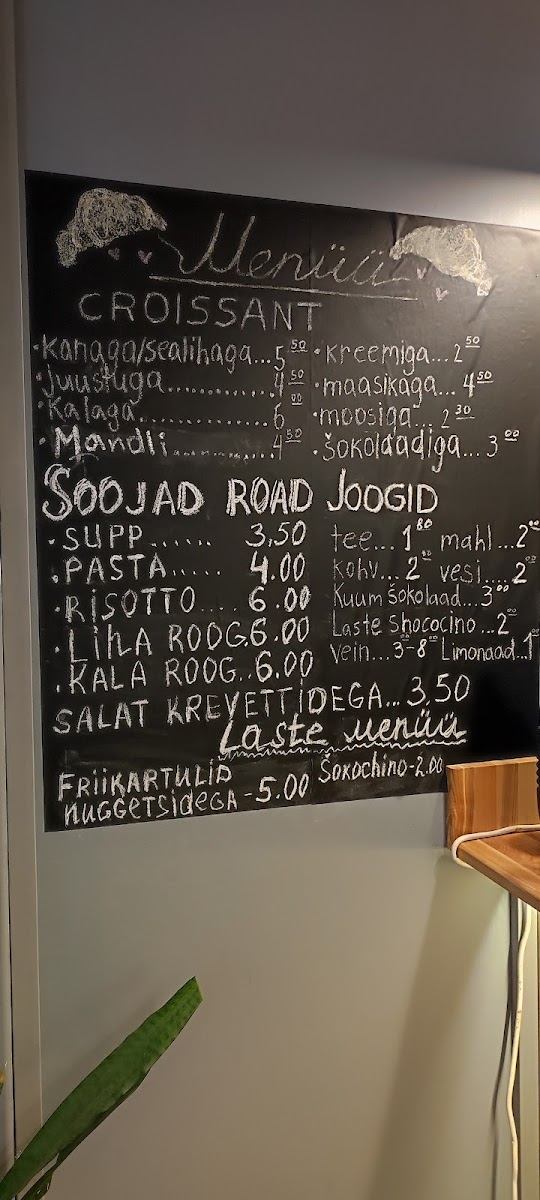 Menüü
CROISSANT
·Kanaga/sealihaga...5 50
·juustuga............4 50
·Kalaga..............6 00
·Mandli............4 50
·kreemiga...2 50
·maasikaga...4 50
·moosiga...2 30
·šokolaadiga...3 00
SOOJAD ROAD
·SUPP...... 3,50
·PASTA..... 4.00
·RISOTTO.... 6.00
·LIHA ROOG.6.00
·KALA ROOG..6.00
SALAT KREVETTIDEGA...3,50
JOOGID
tee...1 80 mahl...2 00
kohv...2 00 vesi....2 00
Kuum šokolaad...3 00
Laste Shococino...2 00
vein...3 00-8 00 Limonaad..1 00
Laste menüü
FRIIKARTULID
nuggetsideGA-5.00
Šokochino-2.00